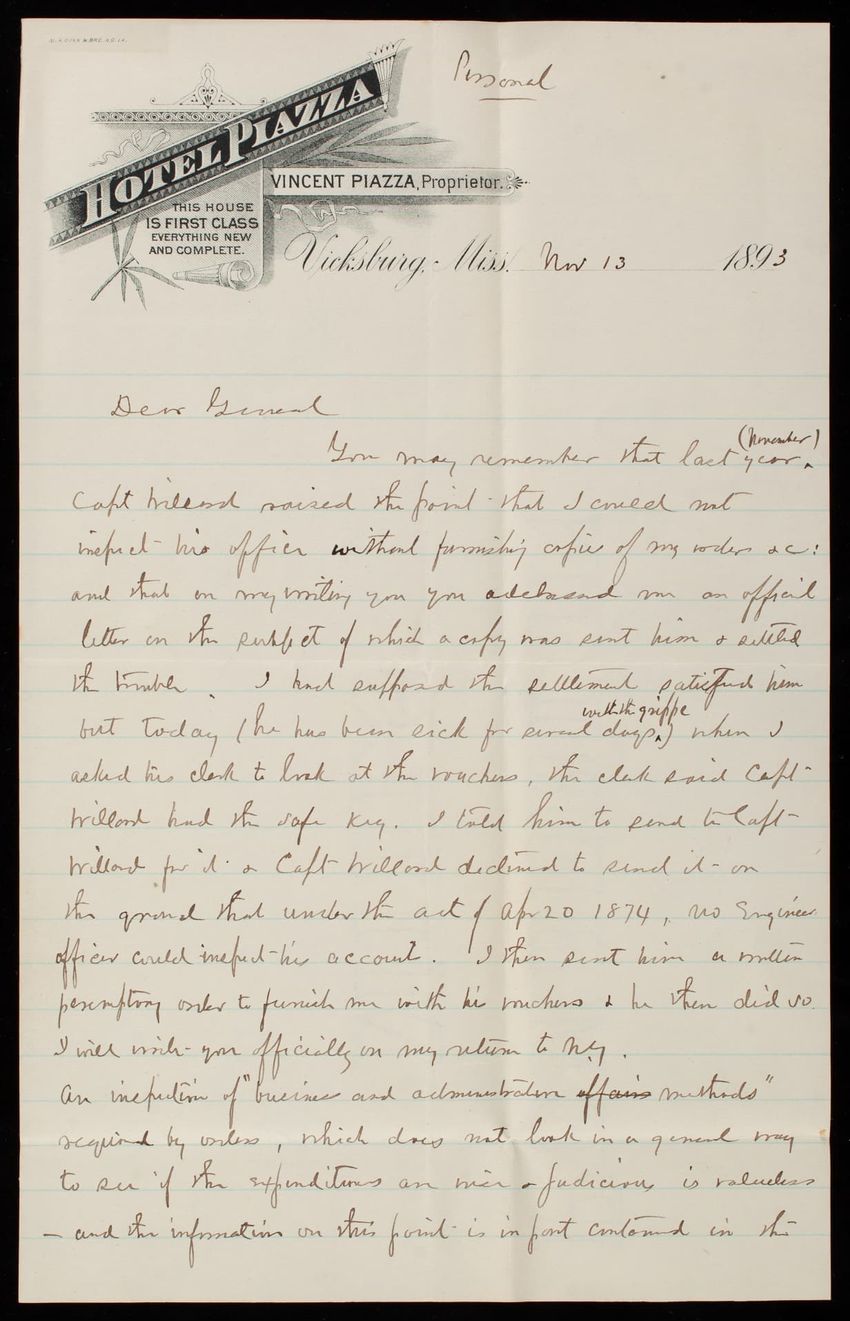 Personal
HOTEL PIAZZA
VINCENT PIAZZA, Proprietor.
THIS HOUSE
IS FIRST CLASS
EVERYTHING NEW
AND COMPLETE.
Vicksburg, Miss. Nov 13 1893
Dear General
You may remember that last year (November)
Capt Willard raised the point that I could not
inspect his office without furnishing copies of my orders &c:
and that on my writing you you addressed me an official
letter on the subject of which a copy was sent him & settled
the trouble. I had supposed the settlement satisfied him
but today (he has been sick for several days with the grippe) when I
asked his clerk to look at the vouchers, the clerk said Capt
Willard had the safe key. I told him to send to Capt
Willard for it & Capt Willard declined to send it on
the ground that under the act of Apr 20 1874, no Engineer
officer could inspect his account. I then sent him a written
peremptory order to furnish me with his vouchers & he then did so.
I will write you officially on my return to N.Y.
An inspection of "business and administration affairs methods"
required by orders, which does not look in a general way
to see if the expenditures are wise & judicious is valueless
— and the information on this point is in part contained in the